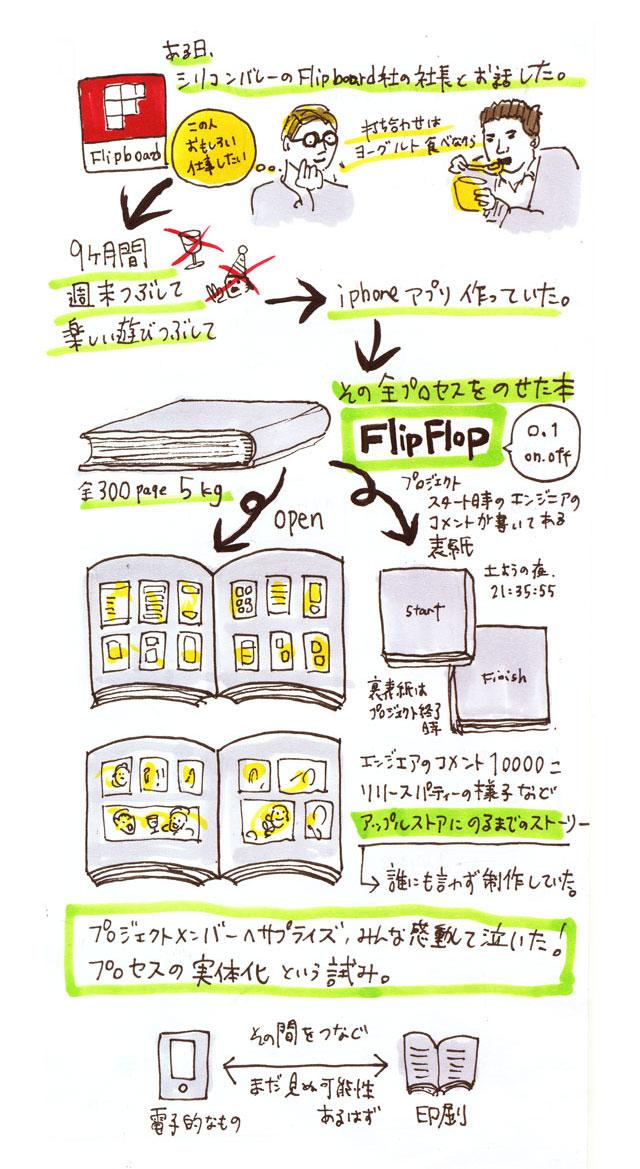 ある日、
シリコンバレーのFlipboard社の社長とお話した。
Flipboard
この人
おもしろい
仕事したい
打ち合わせは
ヨーグルト食べながら
9ヶ月間
週末つぶして
楽しい遊びつぶして
iphoneアプリ作っていた。
その全プロセスをのせた本
FlipFlop
0.1
on.off
全300page 5kg
open
プロジェクト
スタート時のエンジニアの
コメントが書いてある
表紙
土ようの夜、
21:35:55
start
Finish
裏表紙は
プロジェクト終了
時
エンジニアのコメント10000こ
リリースパーティーの様子など
アップルストアにのるまでのストーリー
誰にも言わず制作していた。
プロジェクトメンバーへサプライズ、みんな感動して泣いた!
プロセスの実体化という試み。
その間をつなぐ
まだ見ぬ可能性
あるはず
電子的なもの
印刷